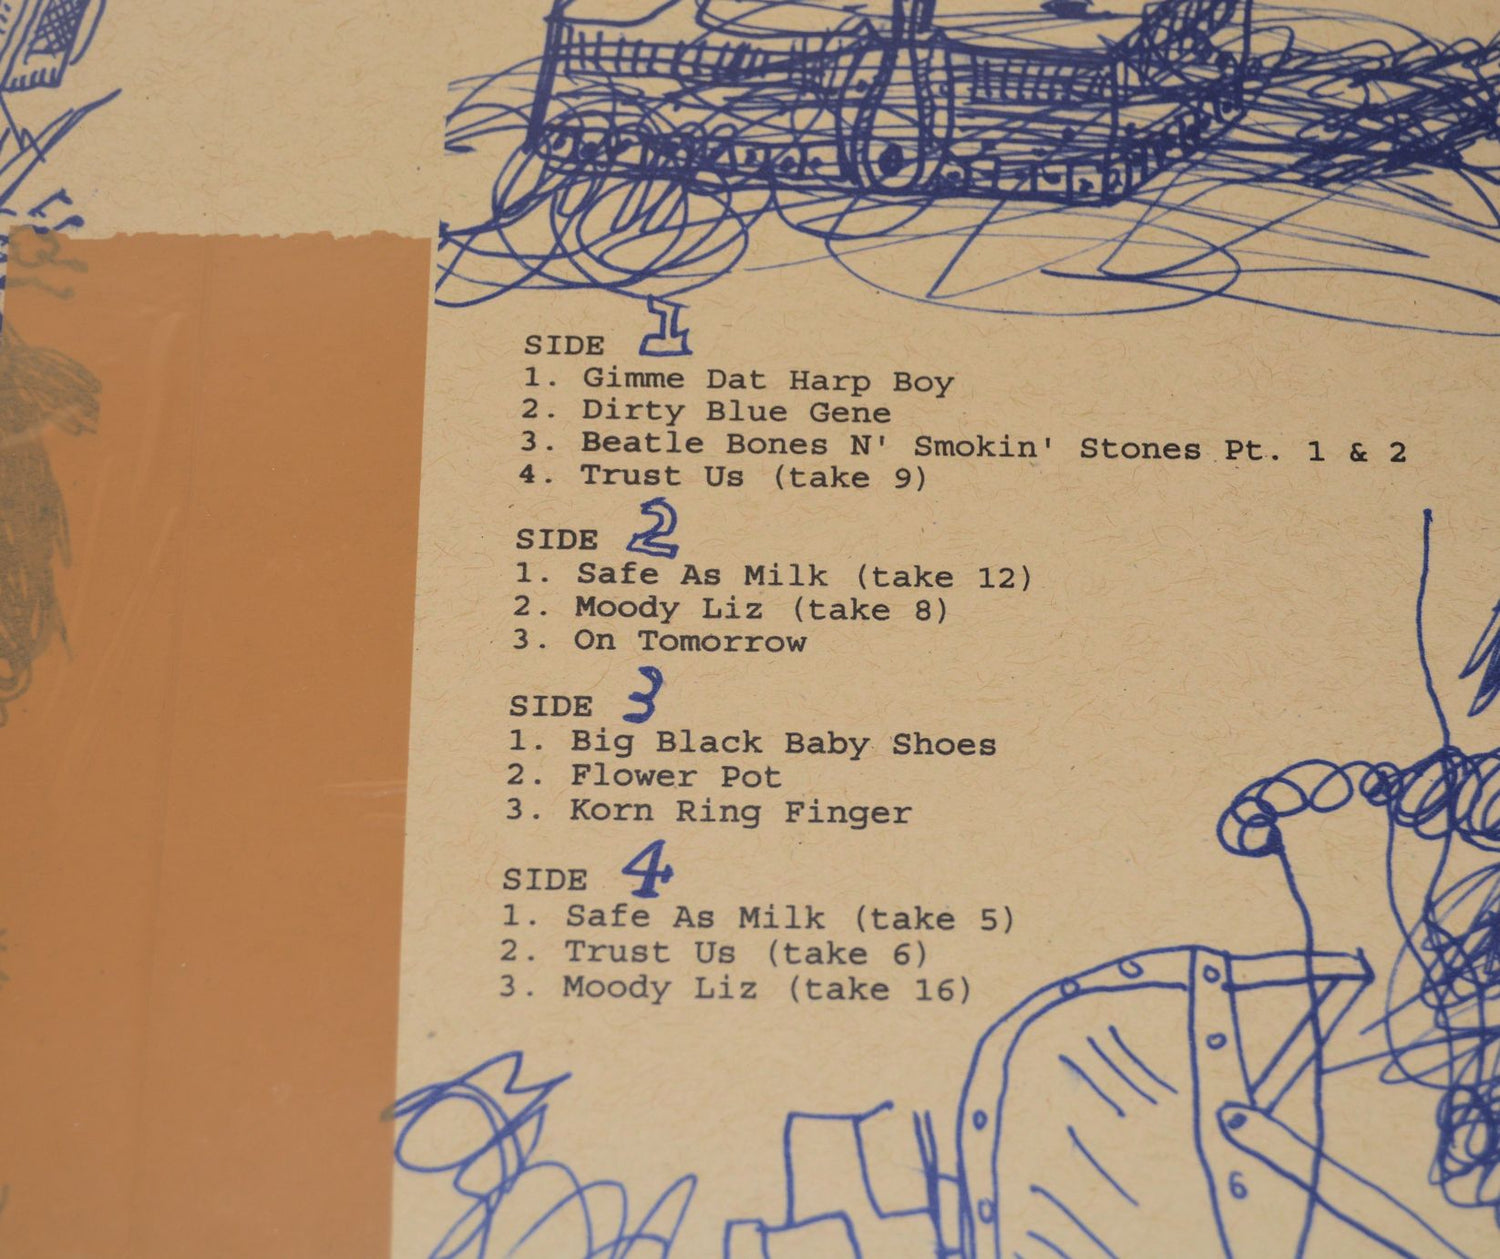 SIDE 1
1. Gimme Dat Harp Boy
2. Dirty Blue Gene
3. Beatle Bones N' Smokin' Stones Pt. 1 & 2
4. Trust Us (take 9)
SIDE 2
1. Safe As Milk (take 12)
2. Moody Liz (take 8)
3. On Tomorrow
SIDE 3
1. Big Black Baby Shoes
2. Flower Pot
3. Korn Ring Finger
SIDE 4
1. Safe As Milk (take 5)
2. Trust Us (take 6)
3. Moody Liz (take 16)